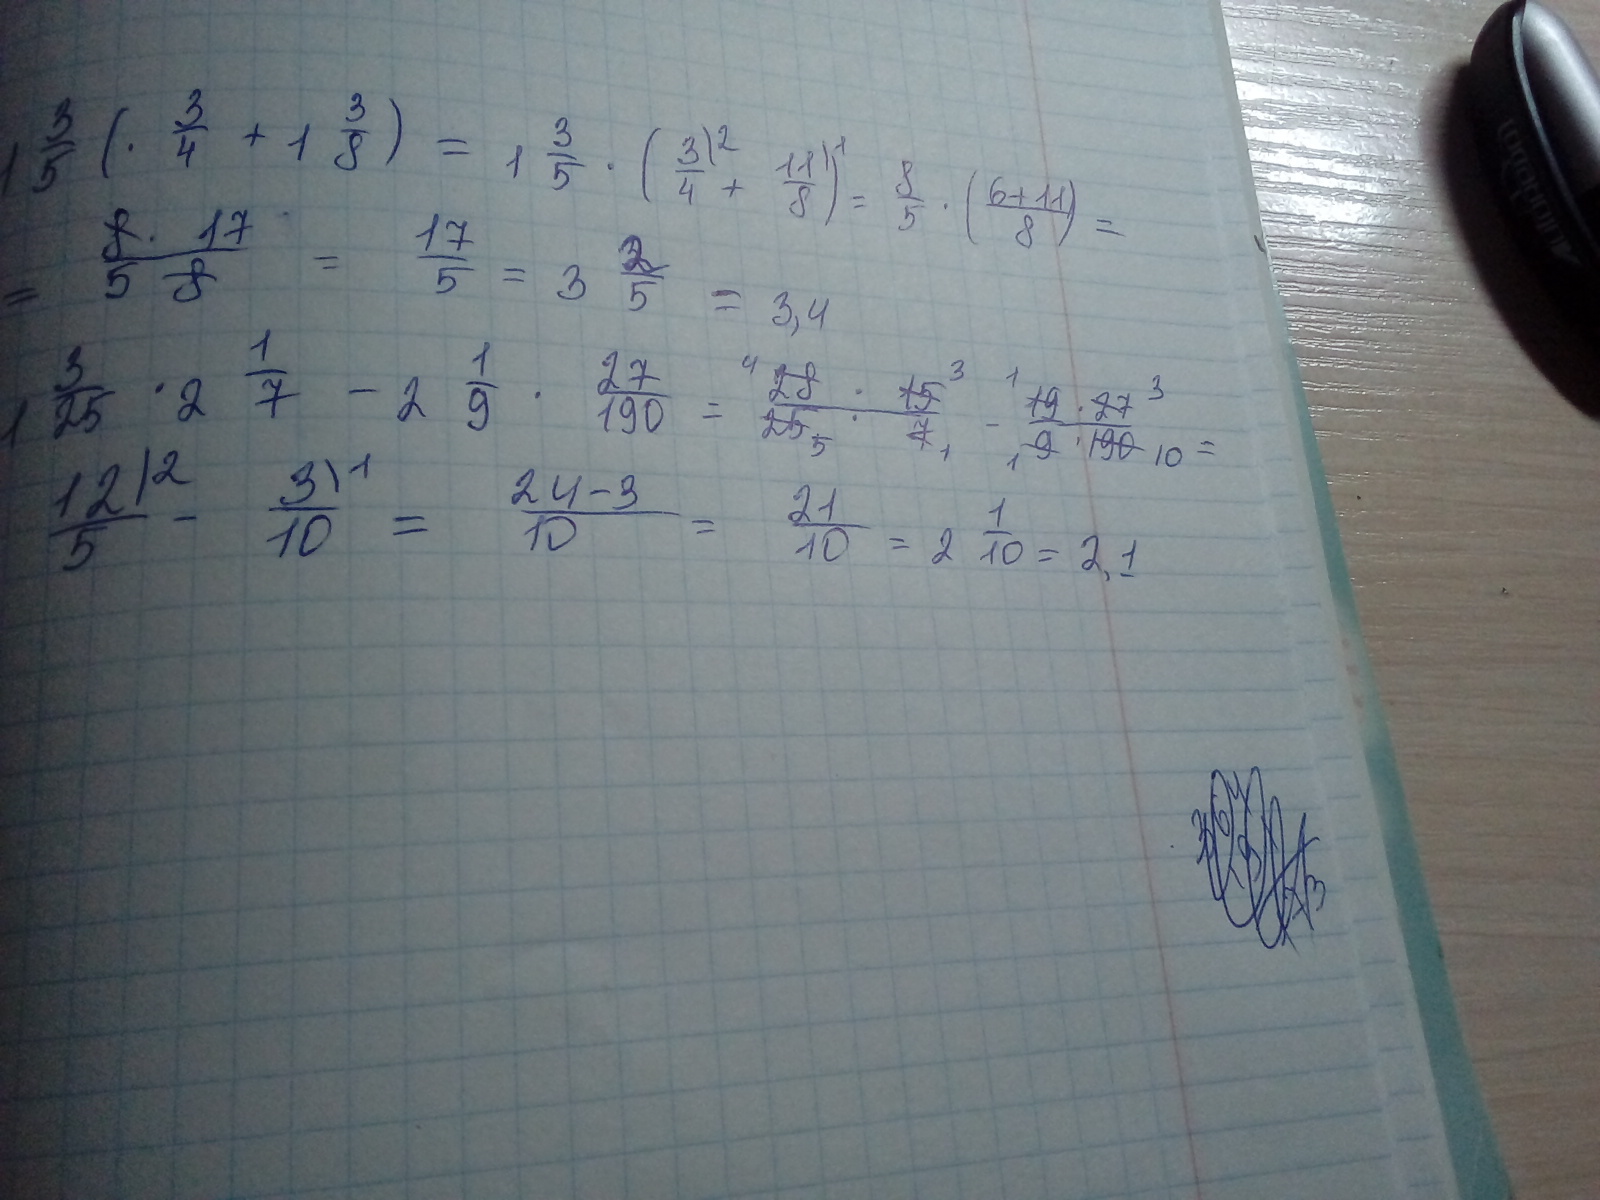 1 3/5 (· 3/4 + 1 3/8) = 1 3/5 · (3/4\2 + 11/8\1) = 8/5 · ((6+11)/8) =
= (8 · 17)/(5 8) = 17/5 = 3 2/5 = 3,4
1 3/25 · 2 1/7 - 2 1/9 · 27/190 = 4 28/25 5 · 15 3/7 1 - 1 19 · 27 3/1 9 · 190 10 =
12/5\2 - 3/10\1 = (24-3)/10 = 21/10 = 2 1/10 = 2,1